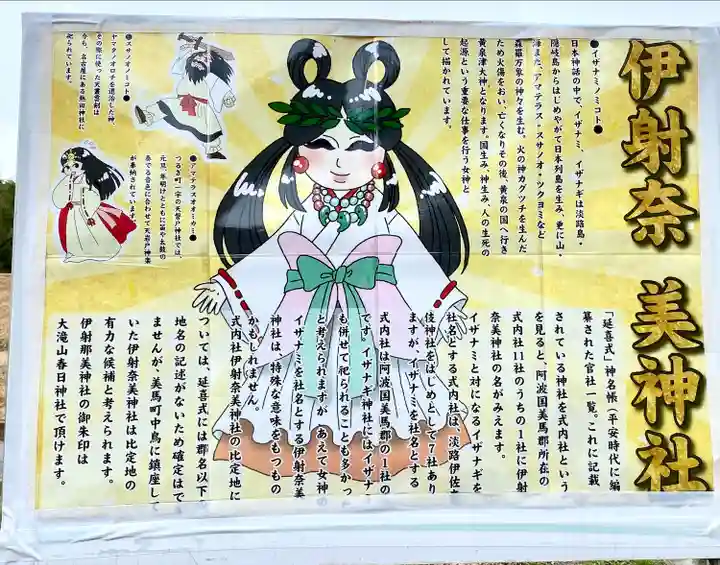 伊射奈美神社
●イザナミノミコト●
日本神話の中で、イザナミ、イザナギは淡路島・
隠岐島からはじめやがて日本列島を生み、更に山・
海また、アマテラス・スサノオ・ツクヨミなど
森羅万象の神々を生む。火の神カグツチを生んだ
ため火傷をおい、亡くなりその後、黄泉の国へ行き
黄泉津大神となります。国生み・神生み、人の生死の
起源という重要な仕事を行う女神と
して描かれています。
●スサノオノミコト●
ヤマタノオロチを退治した神。
その際に使った天叢雲剣は
今も、名古屋にある熱田神社に
祀られています。
●アマテラスオオミカミ●
つるぎ町一宇の天磐戸神社では、
元旦、年明けとともに笛や太鼓の
奏でる音色に合わせて天岩戸神楽
が奉納されています。
「延喜式」神名帳(平安時代に編
纂された官社一覧。これに記載
されている神社を式内社という
を見ると、阿波国美馬郡所在の
式内社11社のうちの1社に伊射
奈美神社の名がみえます。
イザナミと対になるイザナギを
社名とする式内社は、淡路伊佐奈
伎神社をはじめとして7社あり
ますが、イザナミを社名とする
式内社は阿波国美馬郡の1社の
です。イザナギ神社にはイザナ
も併せて祀られることも多かっ
と考えられますが、あえて女神の
イザナミを社名とする伊射奈美
神社は、特殊な意味をもつもの
かもしれません。
式内社伊射奈美神社の比定地に
ついては、延喜式には郡名以下の
地名の記述がないため確定はで
ませんが、美馬町中鳥に鎮座して
いた伊射奈美神社は比定地の
有力な候補と考えられます。
伊射那美神社の御朱印は
大滝山春日神社で頂けます。